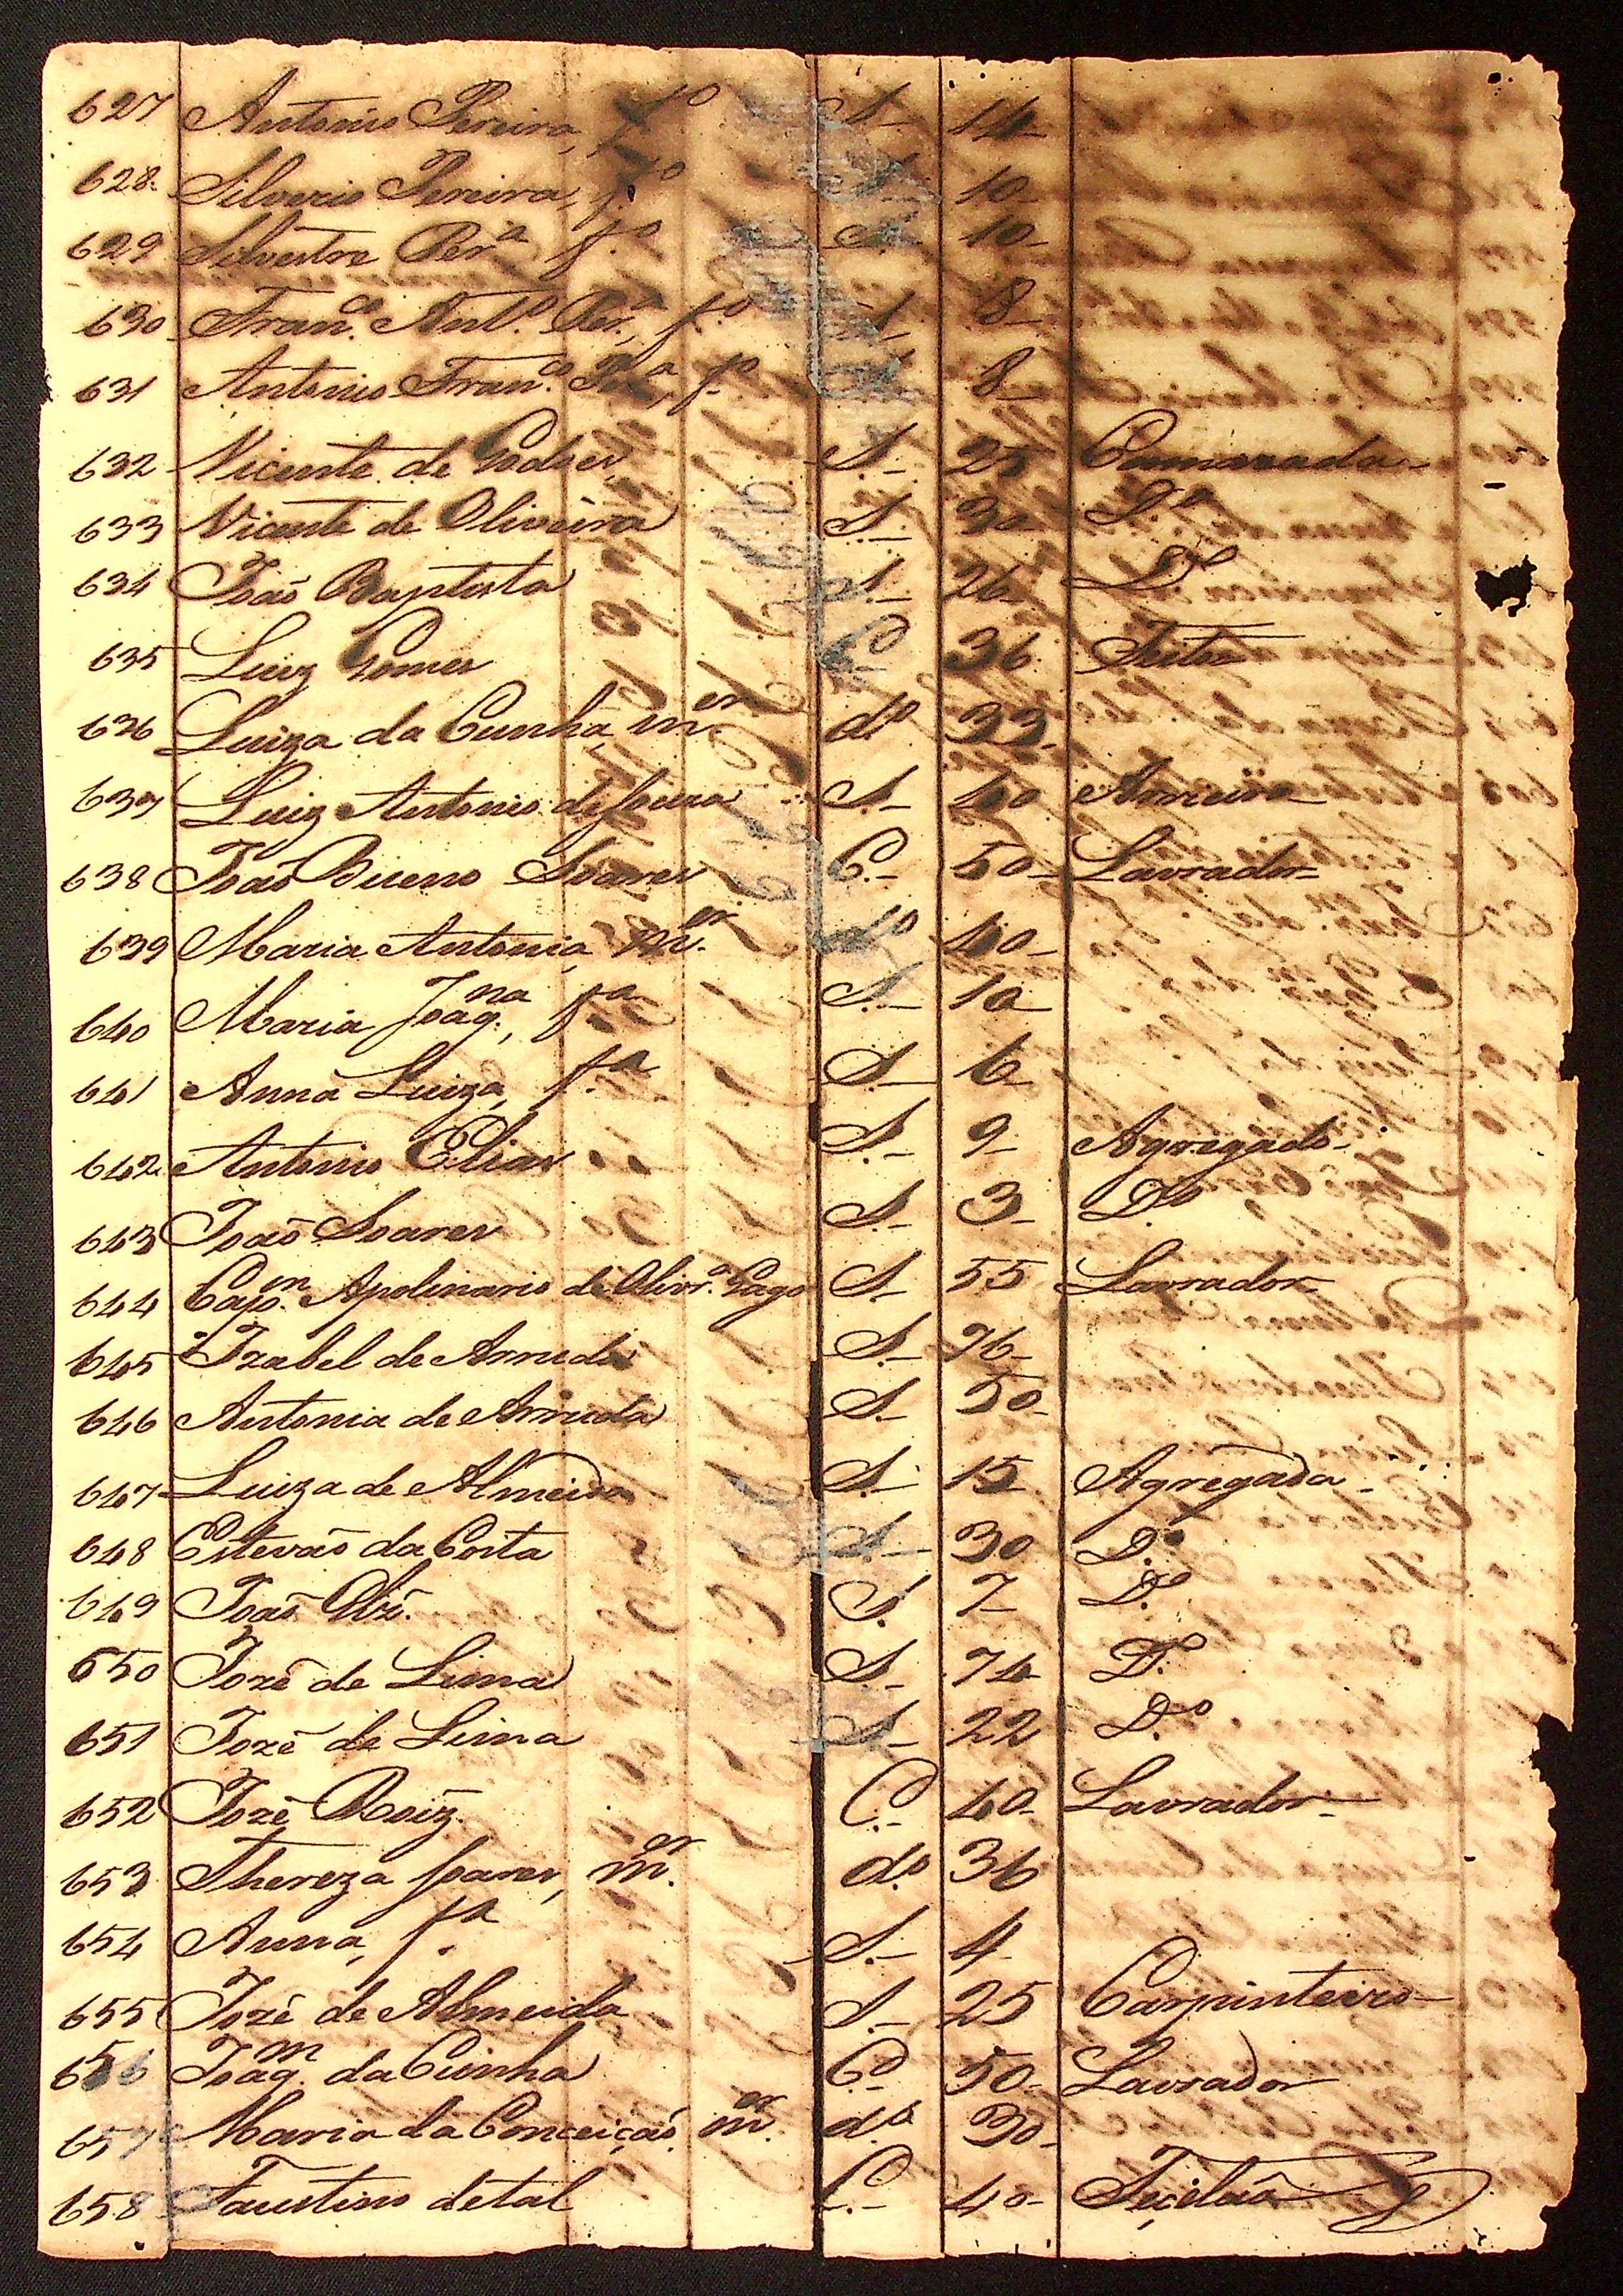 627 Antonio Pereira, f.º S.- 14-
628 Silverio Pereira, f.º S.- 10-
629 Silvestre Per.ª f.º S.- 10-
630 Fran.co Ant.º Per.ª, f.º S.- 8-
631 Antonio Fran.co Per.ª, f.º 8-
632 Vicente de Godoes S.- 25 Camarada-
633 Vicente de Oliveira S.- 30 D.º
634 João Baptista S.- 26 D.º
635 Luiz Gomes C. 36 Feitor
636 Luiza da Cunha, m.er d.º 33-
637 Luiz Antonio de souza S.- 40 Arrieiro
638 João Bueno Soares C.- 50- Lavrador-
639 Maria Antonia, m.er d.º 40-
640 Maria Joaq.na, f.ª S.- 10
641 Anna Luiza, f.ª S.- 6
642 Antonio Elias S.- 9- Agregado-
643 João Soares S.- 3- D.º
644 Cap.m Apolinario de Olivr.ª Gago S.- 55 Lavrador-
645 Izabel de Arruda S.- 76-
646 Antonia de Arruda S.- 50-
647 Luiza de Almeida S.- 15 Agregada-
648 Estevão da Costa S.- 30 D.º
649 João S. 7- D.º
650 Jozé de Lima S.- 74 D.º
651 Jozé de Lima S.- 22 D.º
652 Jozé Roiz. C.- 40- Lavrador-
653 Thereza soares, m.er d.º 36
654 Anna, f.ª S.- 4-
655 Jozé de Almeida S.- 25 Carpinteiro-
656 Joaq.m da Cunha C.- 50- Lavrador
657 Maria da Conceição, m.er d.º 30-
658 Faustino de tal C.- 40- Teçelaõ